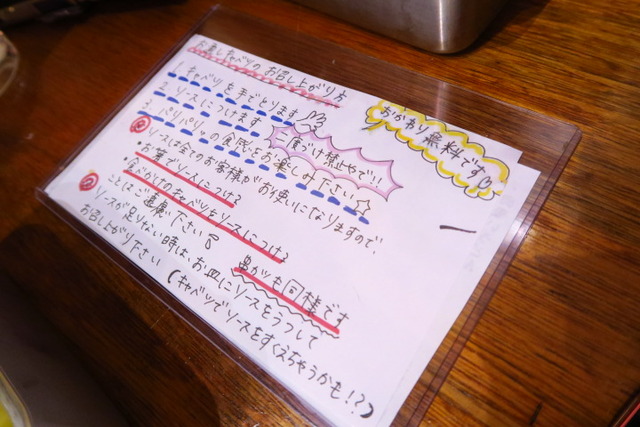 お通しキャベツのお召し上がり方
おかわり無料です
1. キャベツを手でとります
2. ソースにつけます
3. パリパリッの食感をお楽しみ下さい☆
二度づけ禁止やで!!
◎ソースは全てのお客様がお使いになりますので、
・お箸でソースにつける
・食べかけのキャベツをソースにつける
ことはご遠慮下さい
串カツも同様です
◎ソースが足りない時は、お皿にソースをうつして
お召し上がり下さい(キャベツでソースをすくえちゃうかも!?)